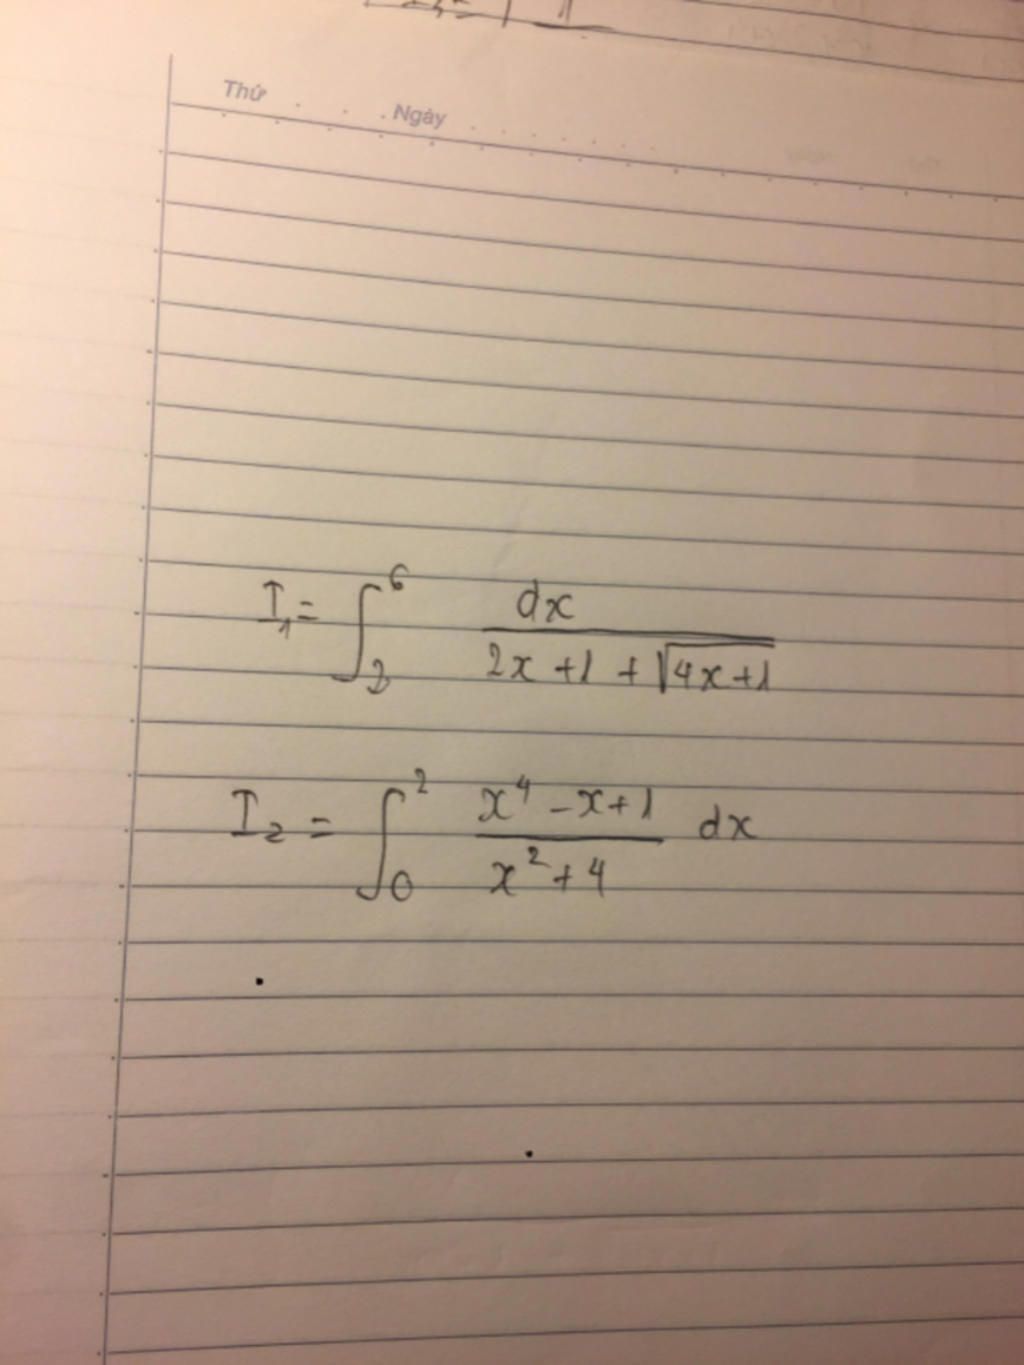 Thứ Ngày
I₁ = ∫₂⁶ dx / (2x + 1 + √(4x+1))
I₂ = ∫₀² (x⁴ - x + 1) / (x² + 4) dx